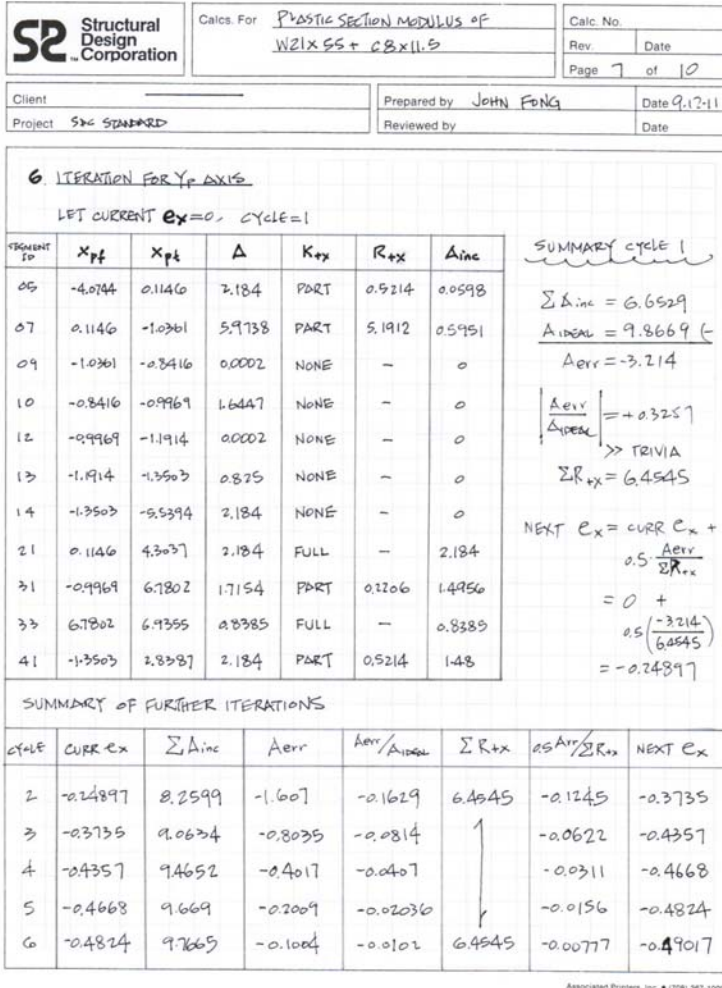 SD Structural
Design
™ Corporation
Calcs. For PLASTIC SECTION MODULUS OF
W21x55 + C8x11.5
Calc. No.
Rev. Date
Page 7 of 10
Client
Prepared by JOHN FONG Date 9.12.11
Project SDC STANDARD Reviewed by Date
6 ITERATION FOR Yp AXIS
LET CURRENT ex=0, CYCLE=1
SEGMENT ID Xpf Xpt A K+x R+x Ainc
05 -4.0744 0.1146 2.184 PART 0.5214 0.0598
07 0.1146 -1.0361 5.9738 PART 5.1912 0.5951
09 -1.0361 -0.8416 0.0002 NONE – 0
10 -0.8416 -0.9969 1.6447 NONE – 0
12 -0.9969 -1.1914 0.0002 NONE – 0
13 -1.1914 -1.3503 0.825 NONE – 0
14 -1.3503 -5.5394 2.184 NONE – 0
21 0.1146 4.3037 2.184 FULL – 2.184
31 -0.9969 6.7802 1.7154 PART 0.2206 1.4956
33 6.7802 6.9355 0.8385 FULL – 0.8385
41 -1.3503 2.8387 2.184 PART 0.5214 1.48
SUMMARY CYCLE 1
ΣAinc = 6.6529
AIDEAL = 9.8669 (-
Aerr = -3.214
|Aerr/AIDEAL| = +0.3257
>> TRIVIA
ΣR+x = 6.4545
NEXT ex = CURR ex +
0.5 · Aerr/ΣR+x
= 0 +
0.5 (-3.214/6.4545)
= -0.24897
SUMMARY OF FURTHER ITERATIONS
CYCLE CURR ex ΣAinc Aerr Aerr/AIDEAL ΣR+x 0.5 Arr/ΣR+x NEXT ex
2 -0.24897 8.2599 -1.607 -0.1629 6.4545 -0.1245 -0.3735
3 -0.3735 9.0634 -0.8035 -0.0814 -0.0622 -0.4357
4 -0.4357 9.4652 -0.4017 -0.0407 -0.0311 -0.4668
5 -0.4668 9.669 -0.2009 -0.02036 -0.0156 -0.4824
6 -0.4824 9.7665 -0.1004 -0.0102 6.4545 -0.00777 -0.49017
Associated Printers, Inc.